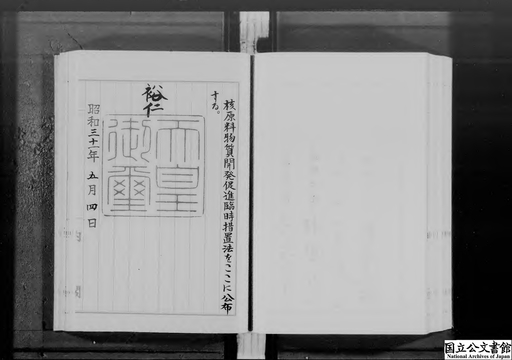 核原料物質開発促進臨時措置法をここに公布
十九。
裕仁
天皇
御璽
昭和三十一年五月四日
国立公文書館
National Archives of Japan